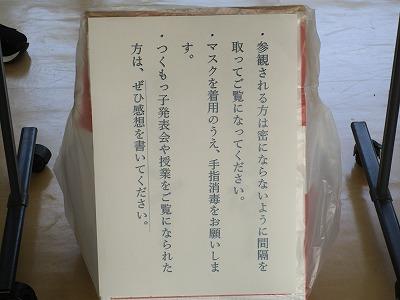 ・参観される方は密にならないように間隔を
取ってご覧になってください。
・マスクを着用のうえ、手指消毒をお願いしま
す。
・つくもっ子発表会や授業をご覧になられた
方は、ぜひ感想を書いてください。